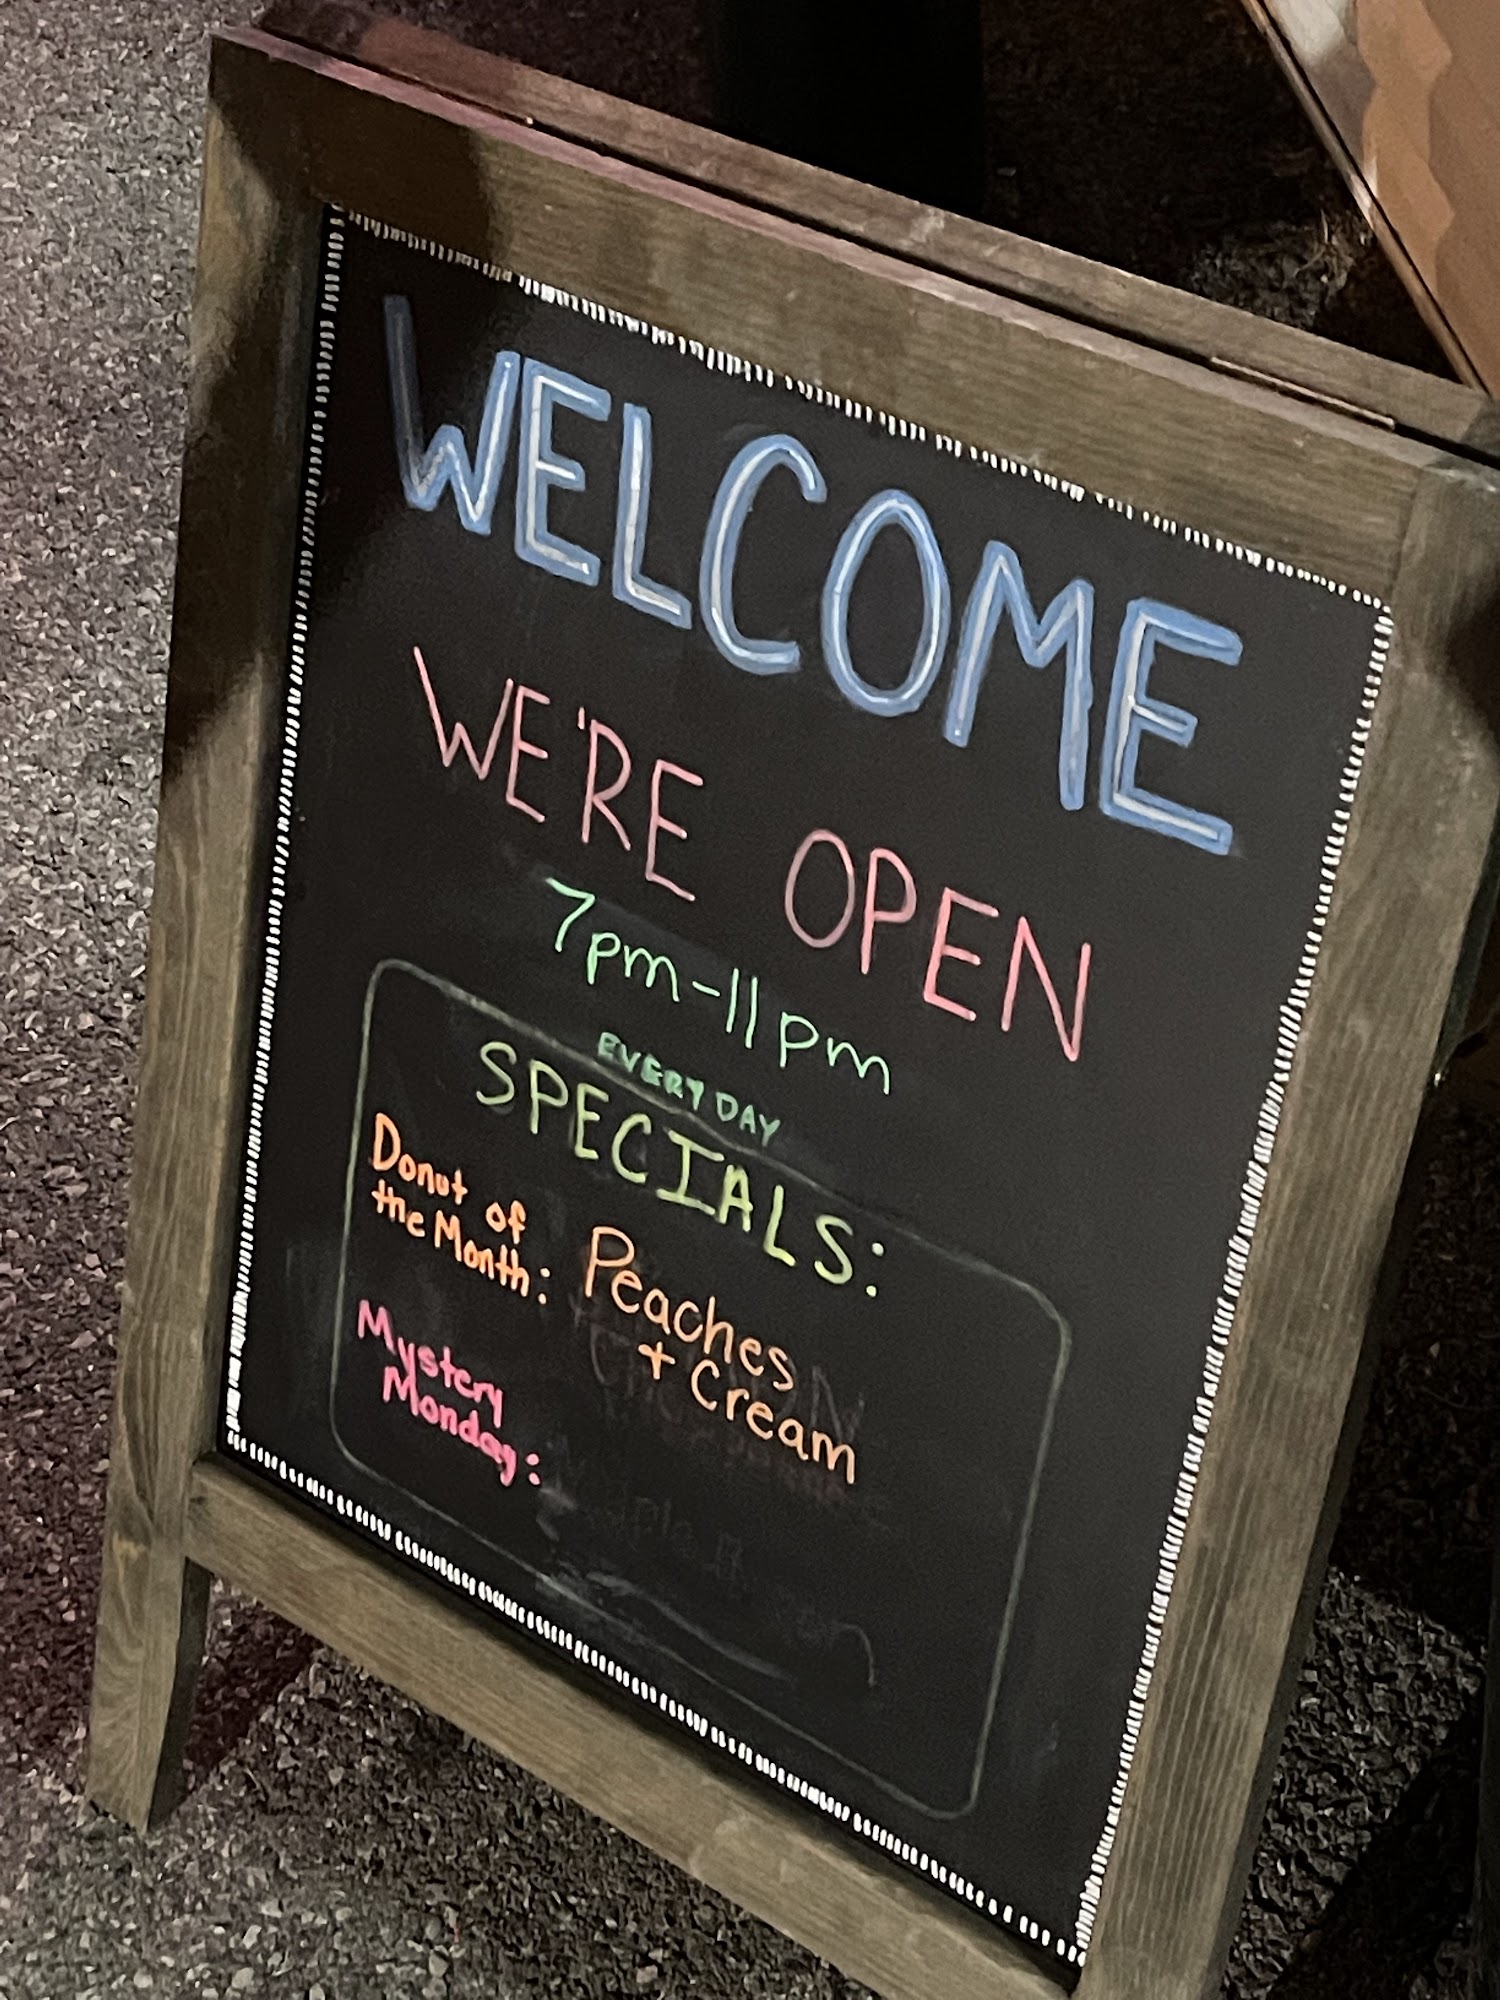 WELCOME
WE'RE OPEN
7pm-11pm
EVERYDAY
SPECIALS:
Donut of
the Month:
Peaches
+ Cream
Mystery
Monday: